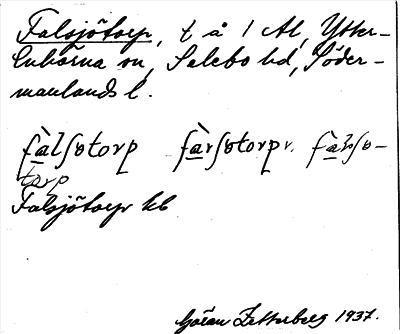 Falsjötorp, t å 1 Al, Ytter-
Enhörna sn, Selebo hd, Söder-
manlands l.
fàlʃɵtorp fàrʃɵtorp r. fàlsɵ-
torp
Falsjötorp kb
Göran Zetterberg 1937.